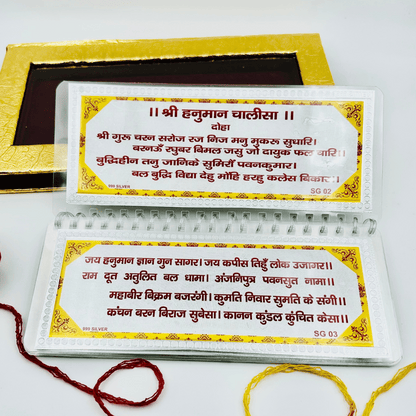 ।। श्री हनुमान चालीसा ।।
दोहा
श्री गुरू चरन सरोज रज निज मनु मुकरू सुधारि।
बरनऊँ रघुबर बिमल जसु जो दायुक फल बारि।।
बुद्धिहीन तनु जानिके सुमिरौं पवनकुमार।
बल बुद्धि विद्या देहु मोंहि हरहु कलेस बिकार।।
999 SILVER
SG 02
जय हनुमान ज्ञान गुन सागर। जय कपीस तिहुँ लोक उजागर।।
राम दूत अतुलित बल धामा। अंजनिपुत्र पवनसुत नामा।।
महाबीर बिक्रम बजरंगी। कुमति निवार सुमति के संगी।।
कंचन बरन बिराज सुबेसा। कानन कुंडल कुंचित केसा।।
999 SILVER
SG 03